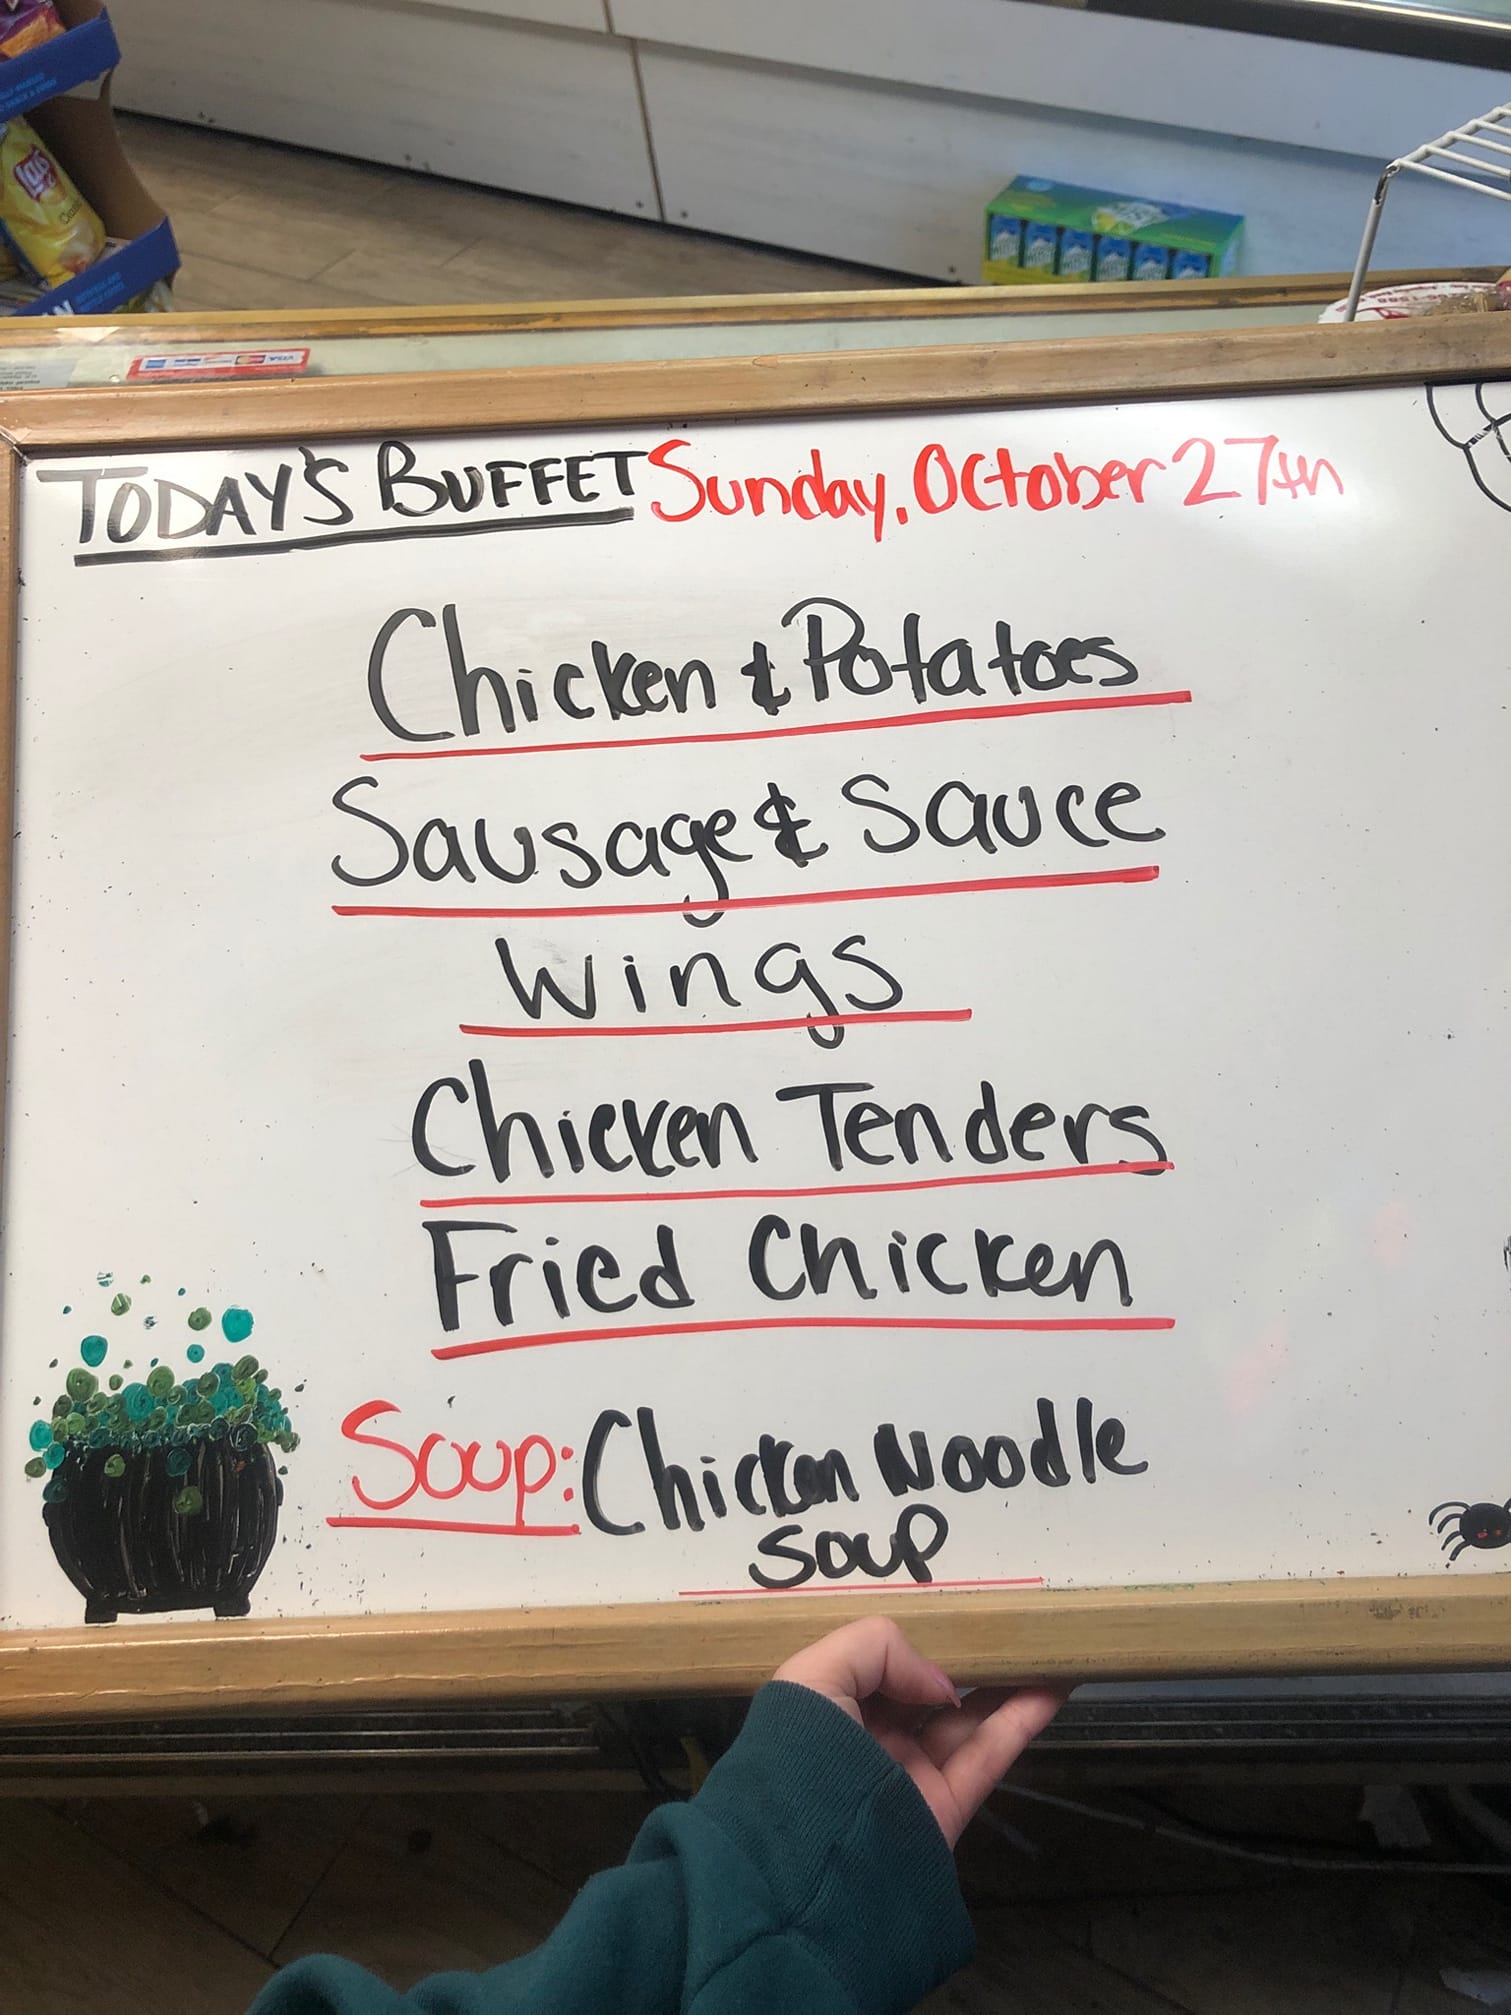 Lay's
Classic
VISA
TODAY'S BUFFET Sunday, October 27th
Chicken & Potatoes
Sausage & Sauce
Wings
Chicken Tenders
Fried Chicken
Soup: Chicken Noodle
Soup